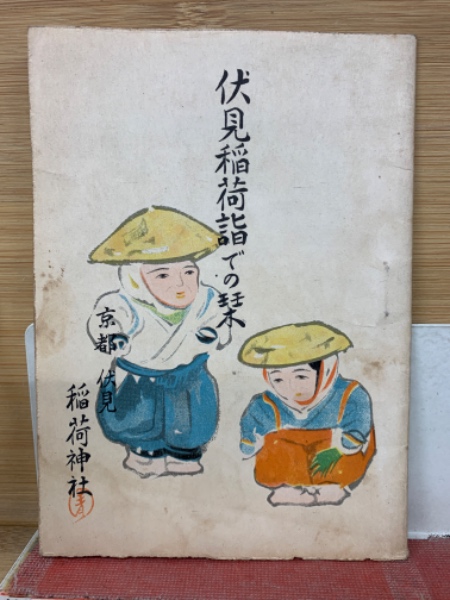 伏見稲荷詣での栞
京都 伏見
稲荷神社